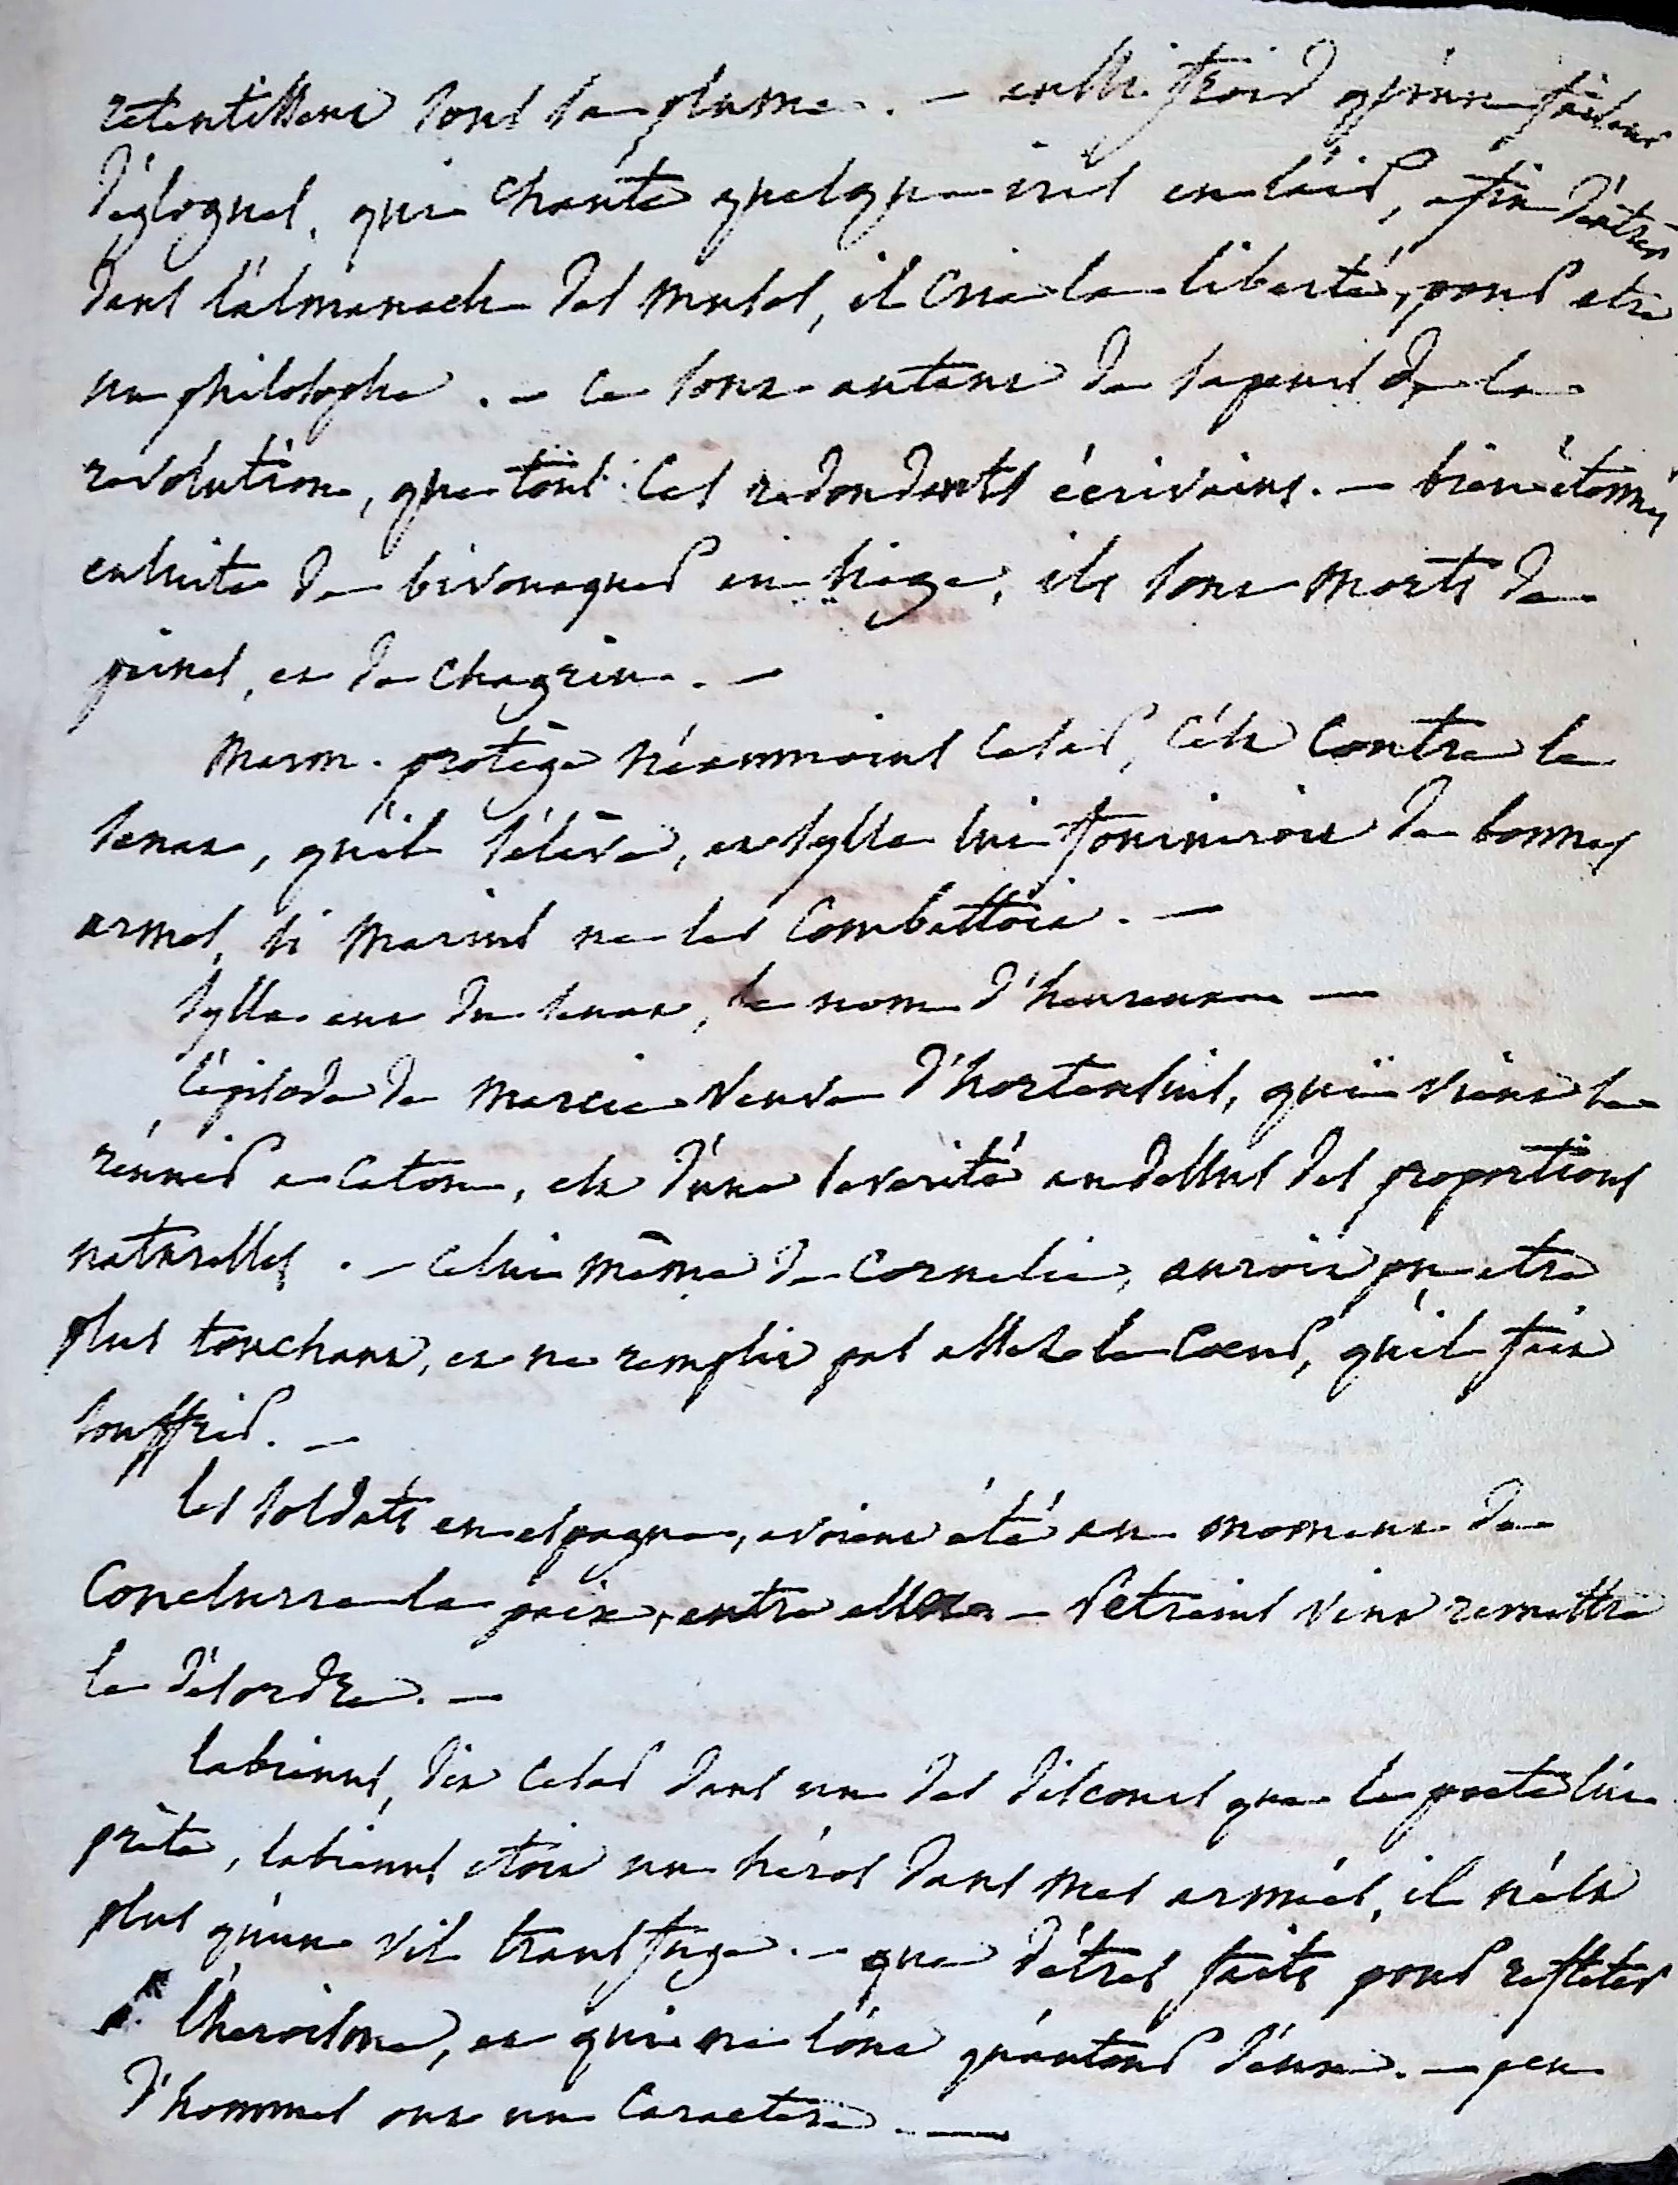 retentissent sous sa plume. — aussi froid qu'un faiseur
d'églogues, qui chante quelqu'iris en l'air, afin d'entrer
dans l'almanach des muses, il crie la liberté, pour etre
un philosophe. — ce sont autant de tapeurs de la
revolution, que tous ces redondants écrivains. — bien étonnés
ensuite de bivouaquer en siège, ils sont morts de
peines, et de chagrin. —
Marm. protège néanmoins Cesar, c'est contre le
senat, qu'il s'élève, et sylla lui fourniroit de bonnes
armes, si Marius ne les combattoit. —
Sylla eut du senat, le nom d'heureux —
l'episode de Marcie veuve d'hortensius, qui vient se
réunir a Caton, est d'une severité au dessus des proportions
naturelles. — Celui même de Cornelie, auroit pu etre
plus touchant, et ne remplit pas assez le coeur, qu'il fait
souffrir. —
les soldats en espagne, avoient été au moment de
conclurre la paix, entre — Petreius vint remettre
le désordre. —
labienus, dit Cesar dans un des discours que le poete lui
prête, labienus étoit un héros dans mes armées, il n'est
plus qu'un vil transfuge. — que d'êtres faits pour refleter
l'heroïsme, et qui ne l'ont qu'autour d'eux. — peu
d'hommes ont un caractere. —